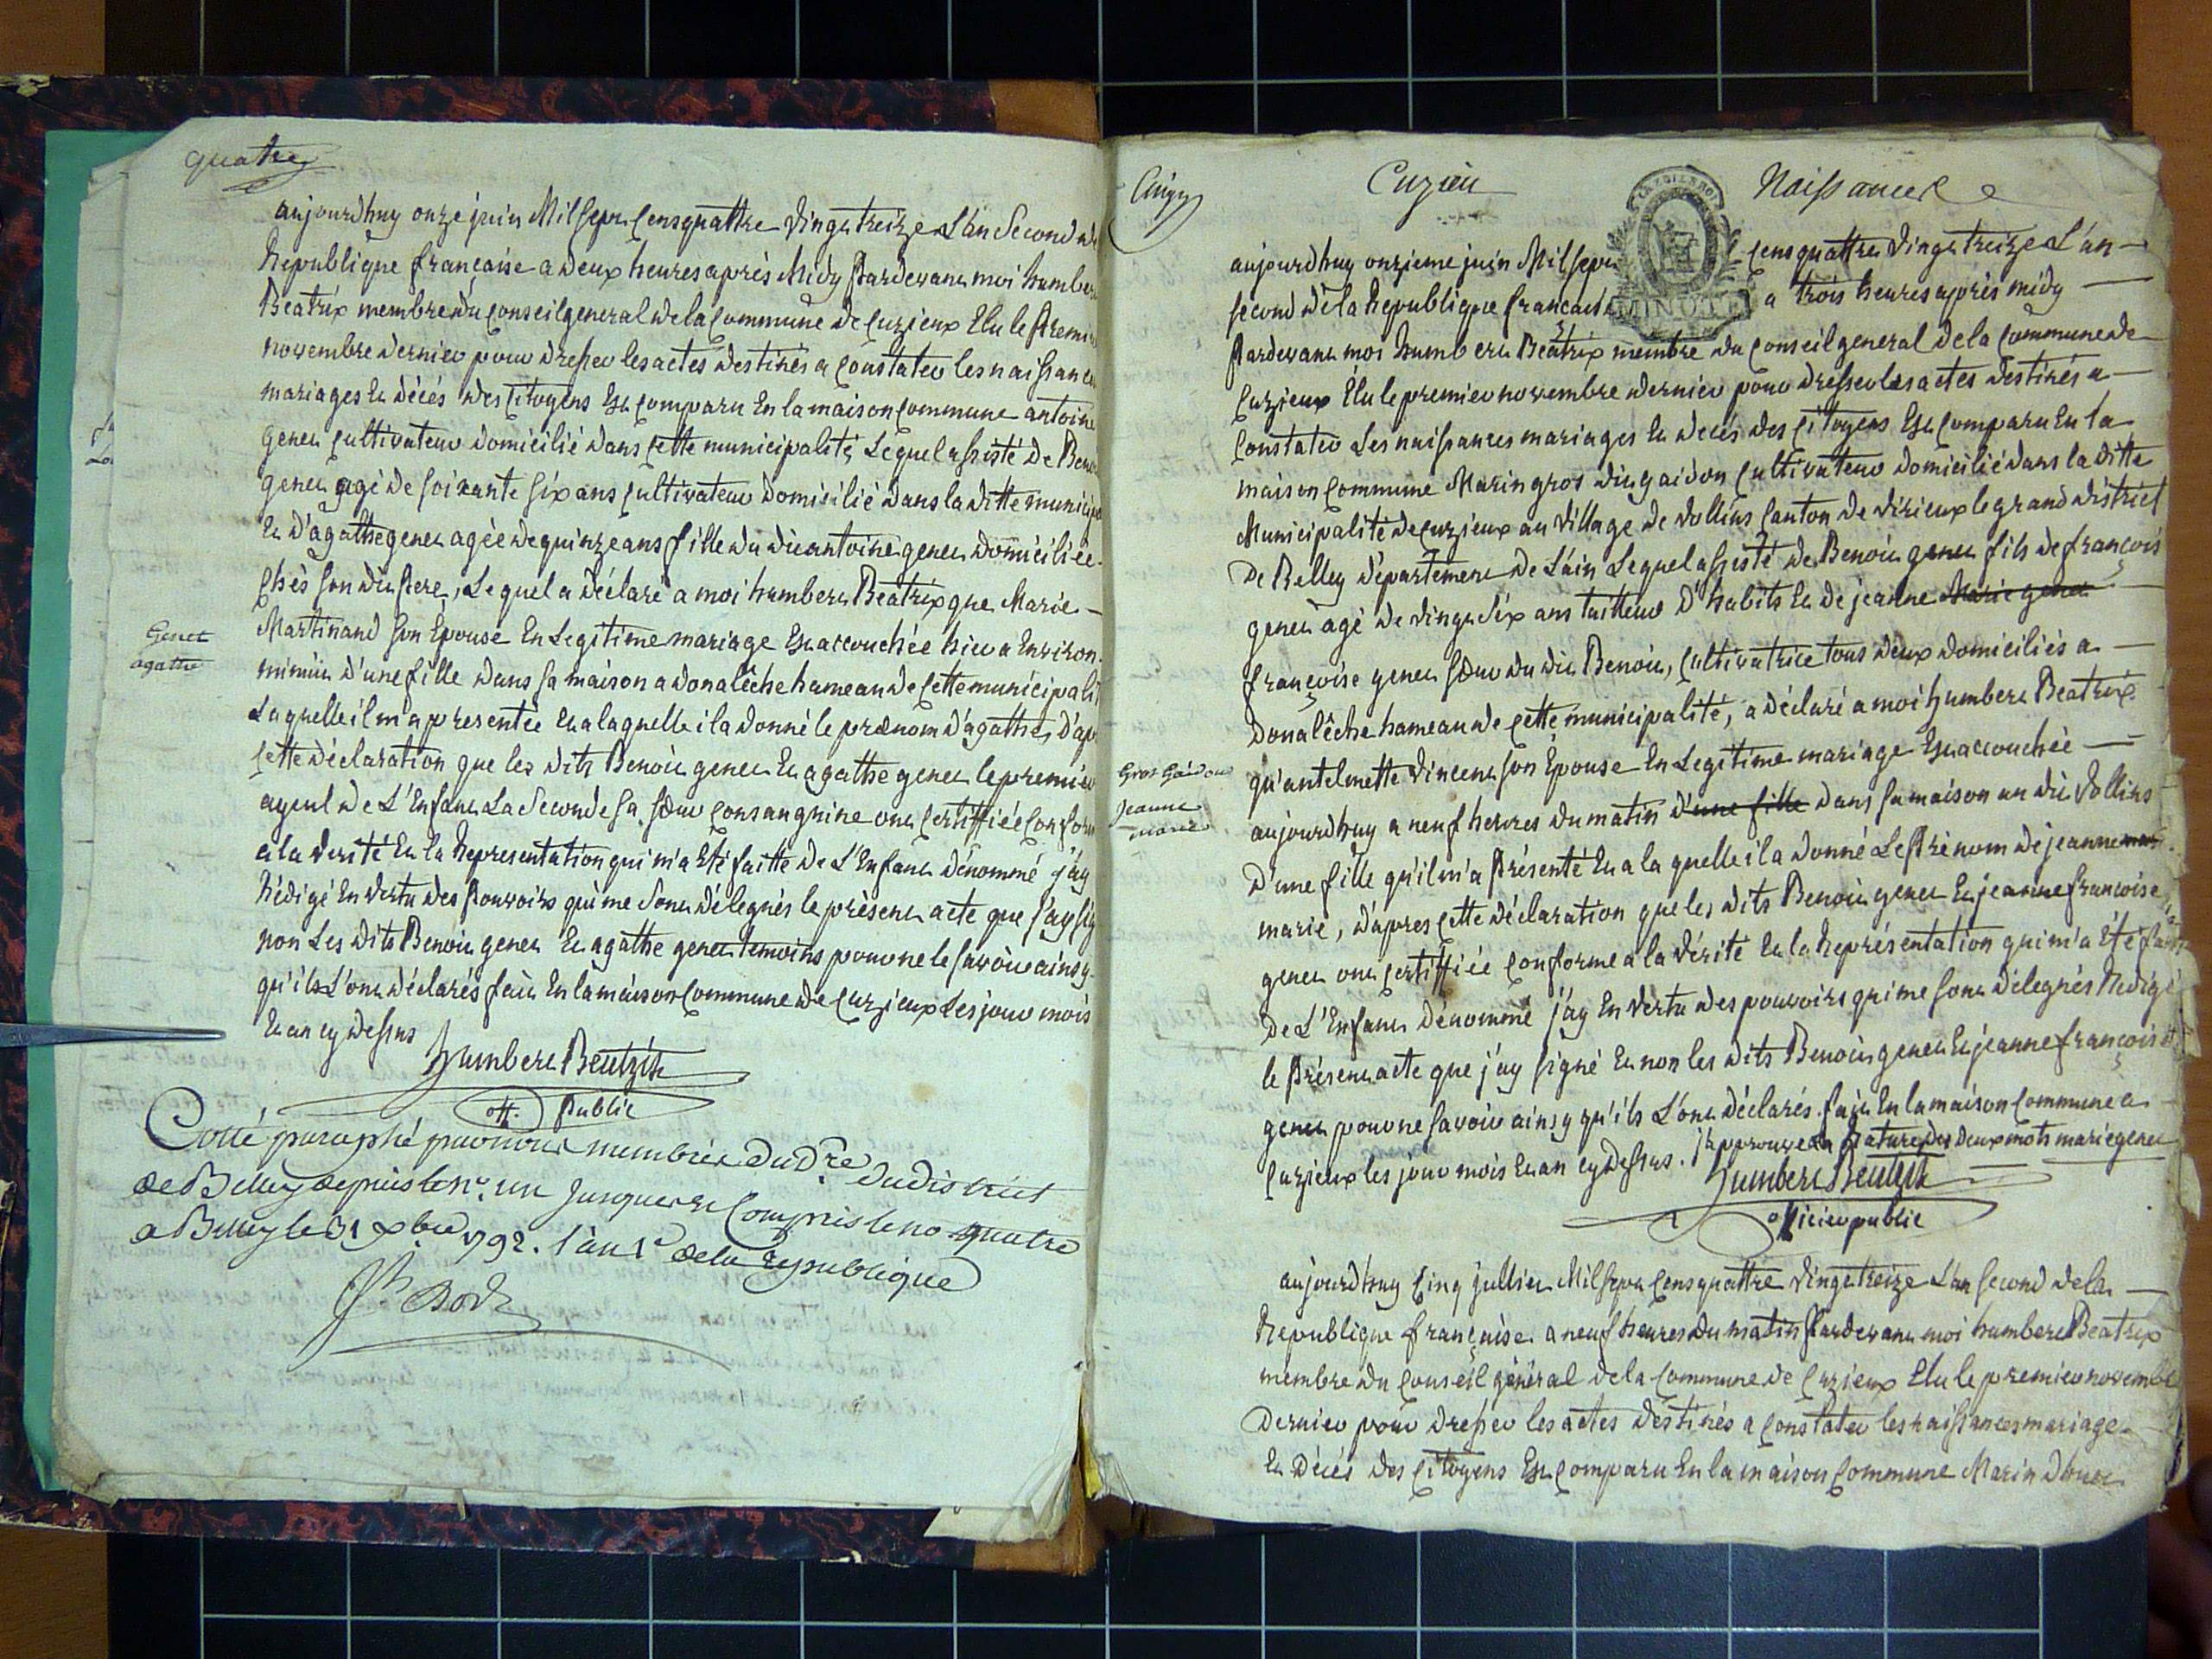 quatre
aujourdhuy onze juin Mil sept cens quattre vingt treize L'an Second de
Republique française a deux heures après Midy Pardevant moi humbert
Béatrix membre du conseil general de la Commune de Cuzieux Elu le Premier
novembre dernier pour dresser les actes destinés a Constater les naissances
mariages et décés des Citoyens Est comparu En la maison Commune antoine
genet Cultivateur domicilié dans Cette municipalité, Lequel assisté de Benoit
genet agé de soixante six ans Cultivateur domicilié dans la ditte municip
Et d'agathe genet agée de quinze ans fille du dit antoine genet domiciliée
Chès son dit Pere, Lequel a déclaré a moi humbert Béatrix que Marie
Martinand son Epouse En Legitime mariage Est accouchée hier a Environ
minuit d'une fille dans sa maison a donalêche hameau de Cette municipali
Laquelle il m'a presentée Et a laquelle il a donné le prænom d'agathe, D'ap
Cette déclaration que les dits Benoit genet Et agathe genet le premier
ayeul de L'Enfant La Seconde sa sœur Consanguine ont Certiffiée Confor
a la verité Et la Representation qui m'a Eté faitte de L'Enfant dénommé j'ay
Rédigé En vertu des Pouvoirs qui me Sont délegués le présent acte que j'ay sig
non Les dits Benoit genet Et agathe genet temoins pour ne le savoir ainsy
qu'ils L'ont déclarés fait En la maison Commune de Cuzieux Les jour mois
Et an cy dessus
Genet
agathe
Humbert Beatrix
off. Public
Cotté paraphé par nous membre du D.re du district
de Belley depuis le n.o un Jusques et Compris le no quatre
a Belley le 31 xbre 1792. l'an 1er de la republique
Cuzieu
Naissance
MINUTE
aujourdhuy onzieme juin Mil sept cens quattre vingt treize L'an
second de la Republique française a trois heures après midy
Pardevant moi humbert Beatrix membre du Conseil general de la Commune de
Cuzieux Élu le premier novembre dernier pour dresser les actes destinés a
Constater Les naissances mariages Et decés des Citoyens Est comparu En la
maison Commune Marin gros dit gaidon Cultivateur domicilié dans la ditte
Municipalité de Cuzieux au village de vollins Canton de virieux le grand district
De Belley département de L'ain Lequel assisté de Benoit genet fils de françois
genet agé de vingt six ans tailleur d'habits Et de jeanne Marie genet
françoise genet sœur du dit Benoit, Cultivatrice tous deux domiciliés a
Donalêche hameau de Cette municipalité, a déclaré a moi humbert Beatrix
qu'antelmette vincent son Epouse En Legitime mariage Est accouchée
aujourdhuy a neuf heures du matin d'une fille dans sa maison au dit vollins
D'une fille qu'il m'a Présenté Et a la quelle il a donné Le Prénom de jeanne mari
marie, d'apres Cette déclaration que les dits Benoit genet Et jeanne francoise
genet ont Certiffiée Conforme a la vérité Et la Représentation qui m'a Été faite
de L'Enfant dénommé j'ay En vertu des pouvoirs qui me sont délegués Redigé
le Présent acte que j'ay signé Et non les dits Benoit genet Et jeanne françoise
genet pour ne savoir ainsy qu'ils L'ont déclarés. fait En la maison Commune a
Cuzieux les jour mois Et an cy dessus. J'approuve La Rature des deux mots marie genet
Gros Gaidon
jeanne
marie
Humbert Beatrix
officier public
aujourdhuy Cinq jullier Mil sept Cens quattre vingt treize L'an second de la
Republique française a neuf heures du matin Pardevant moi humbert Beatrix
membre du Conseil général de la Commune de Cuzieux Elu le premier novembre
dernier pour dresser les actes destinés a Constater les naissances mariage
Et décés des Citoyens Est Comparu En la maison Commune Marin